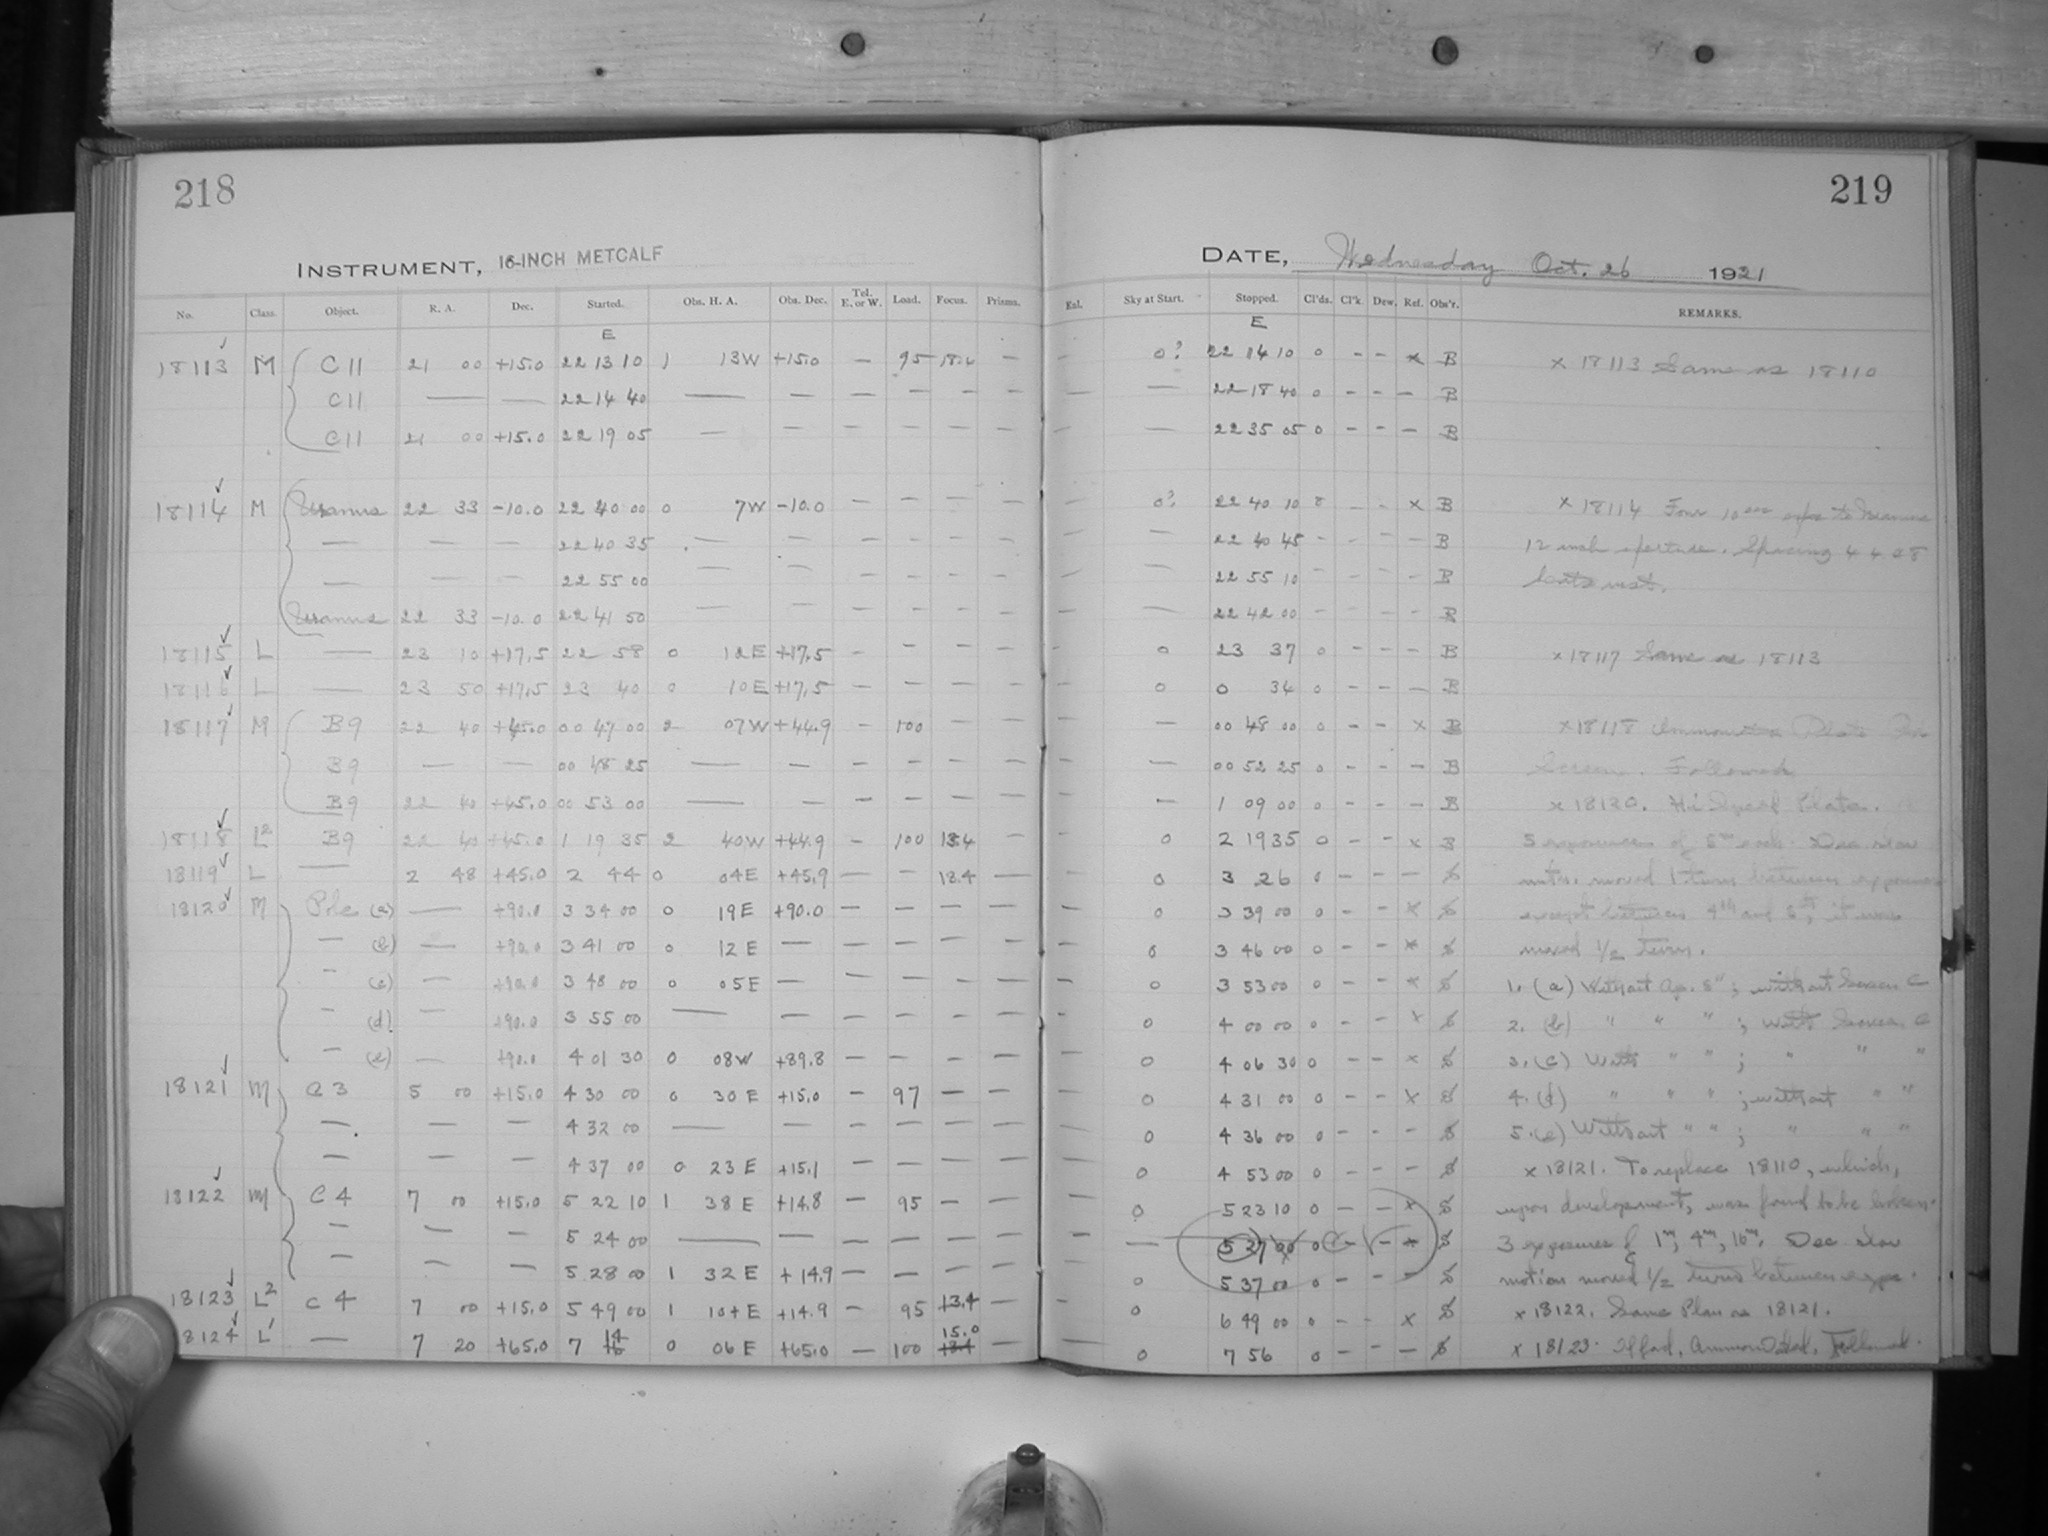 218
INSTRUMENT, 16-INCH METCALF
No. Class. Object. R. A. Dec. Started. Obs. H. A. Obs. Dec. Tel. E. or W. Load. Focus. Prisms.
E
18113 M C11 21 00 +15.0 22 13 10 1 13W +15.0 — 95 18.4 —
C11 — — 22 14 40 — — — — — —
C11 21 00 +15.0 22 19 05 — — — — — —
18114 M Uranus 22 33 -10.0 22 40 00 0 7W -10.0 — — — —
— — — 22 40 35 — — — — — —
— — — 22 55 00 — — — — — —
Uranus 22 33 -10.0 22 41 50 — — — — — —
18115 L — 23 10 +17.5 22 58 0 12E +17.5 — — — —
18116 L — 23 50 +17.5 23 40 0 10E +17.5 — — — —
18117 M B9 22 40 +45.0 00 47 00 2 07W +44.9 — 100 — —
B9 — — 00 48 25 — — — — — —
B9 22 40 +45.0 00 53 00 — — — — — —
18118 L2 B9 22 40 +45.0 1 19 35 2 40W +44.9 — 100 13.4 —
18119 L — 2 48 +45.0 2 44 0 04E +45.9 — — 13.4 —
18120 M Pole (a) — +90.0 3 34 00 0 19E +90.0 — — — —
— (b) — +90.0 3 41 00 0 12E — — — — —
— (c) — +90.0 3 48 00 0 05E — — — — —
— (d) — +90.0 3 55 00 — — — — — —
— (e) — +90.0 4 01 30 0 08W +89.8 — — — —
18121 M C3 5 00 +15.0 4 30 00 0 30E +15.0 — 97 — —
— — — 4 32 00 — — — — — —
— — — 4 37 00 0 23E +15.1 — — — —
18122 M C4 7 00 +15.0 5 22 10 1 38E +14.8 — 95 — —
— — — 5 24 00 — — — — — —
— — — 5 28 00 1 32E +14.9 — — — —
18123 L2 C4 7 00 +15.0 5 49 00 1 10+E +14.9 — 95 +3.4 —
15.0
18124 L' — 7 20 +65.0 7 14 0 06E +65.0 — 100 —
219
DATE, Wednesday Oct. 26 1921
Eal. Sky at Start. Stopped. Cl'ds. Cl'k. Dew. Ref. Obs'r. REMARKS.
E
— 0? 22 14 10 0 — — x B x 18113 Same as 18110
— — 22 18 40 0 — — — B
— 22 35 05 0 — — — B
— 0? 22 40 10 — — x B x 18114 Four 10 sec exps to Uranus
— — 22 40 45 — — — B 12 inch aperture. Spacing 4 4 8
— — 22 55 10 — — — — B
— — 22 42 00 — — — — B
- 0 23 37 0 — — — B x18117 Same as 18113
— 0 0 34 0 — — — B
— — 00 48 00 0 — — x B x18118 Plate
— — 00 52 25 0 — — — B Screen. Followed
— — 1 09 00 0 — — — B x 18120. Plate.
— 0 2 19 35 0 — — x B 5 exposures of 5m each. Dec. slow
— 0 3 26 0 — — — S moved 1 turn between exposures
— 0 3 39 00 0 — — x S except between 4th and 5th, it was
— 0 3 46 00 0 — — x S moved 1/2 turn.
— 0 3 53 00 0 — — x S 1. (a) Without Ap. 8"; without Screen C
— 0 4 00 00 0 — — x S 2. (b) " " " ; with Screen C
— 0 4 06 30 0 — — x S 3. (c) With " " ; " " "
— 0 4 31 00 0 — — x S 4. (d) " " " ; without " "
— 0 4 36 00 0 — — — S 5. (e) Without " " ; " " "
— 0 4 53 00 0 — — — S x 18121. To replace 18110, which,
— 0 5 23 10 0 — — x S upon development, was found to be broken.
— — 5 27 00 0 — — x S 3 exposures of 1m, 4m, 16m. Dec. slow
— 0 5 37 00 0 — — — S motion moved 1/2 turns between exps.
— 0 6 49 00 0 — — x S x 18122. Same Plan as 18121.
— 0 7 56 0 — — — S x 18123. Ilford, Followed.